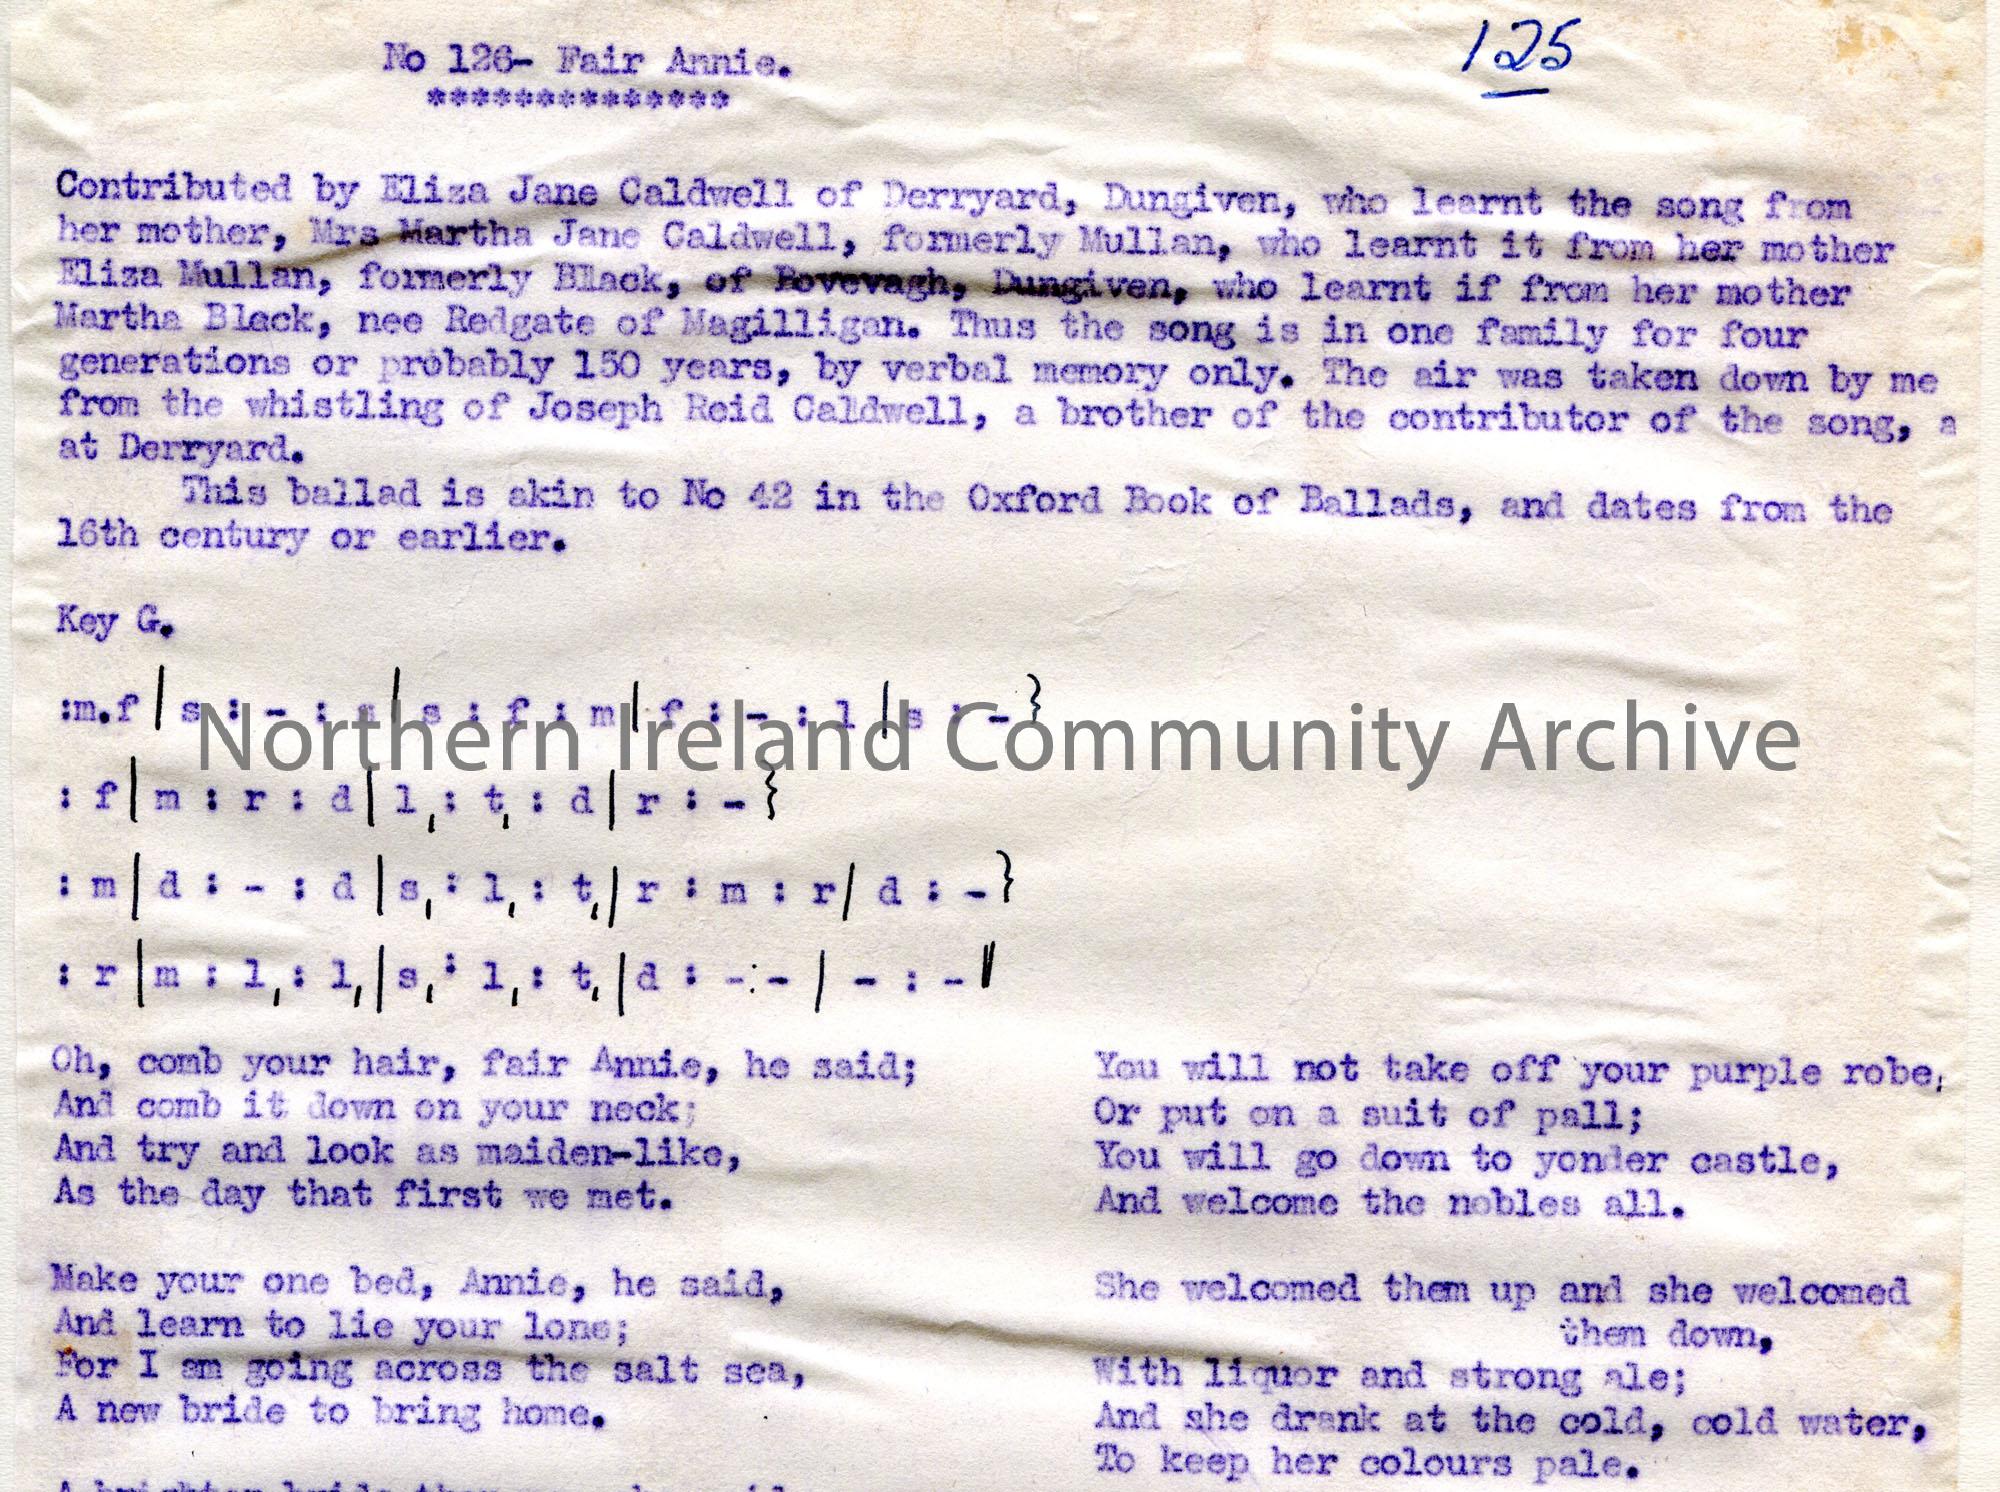 No 126- Fair Annie.
**************
125
Contributed by Eliza Jane Caldwell of Derryard, Dungiven, who learnt the song from
her mother, Mrs Martha Jane Caldwell, formerly Mullan, who learnt it from her mother
Eliza Mullan, formerly Black, of Bovevagh, Dungiven, who learnt if from her mother
Martha Black, nee Redgate of Magilligan. Thus the song is in one family for four
generations or probably 150 years, by verbal memory only. The air was taken down by me
from the whistling of Joseph Reid Caldwell, a brother of the contributor of the song, a
at Derryard.
This ballad is akin to No 42 in the Oxford Book of Ballads, and dates from the
16th century or earlier.
Key G.
:m.f | s : - : s | s : f : m | f : - : l | s : - }
Northern Ireland Community Archive
: f | m : r : d | l, : t, : d | r : - }
: m | d : - : d | s, : l, : t, | r : m : r / d : - }
: r | m : l, : l, | s, : l, : t, | d : - : - | - : - ||
Oh, comb your hair, fair Annie, he said;
And comb it down on your neck;
And try and look as maiden-like,
As the day that first we met.
Make your one bed, Annie, he said,
And learn to lie your lone;
For I am going across the salt sea,
A new bride to bring home.
You will not take off your purple robe,
Or put on a suit of pall;
You will go down to yonder castle,
And welcome the nobles all.
She welcomed them up and she welcomed
them down,
With liquor and strong ale;
And she drank at the cold, cold water,
To keep her colours pale.